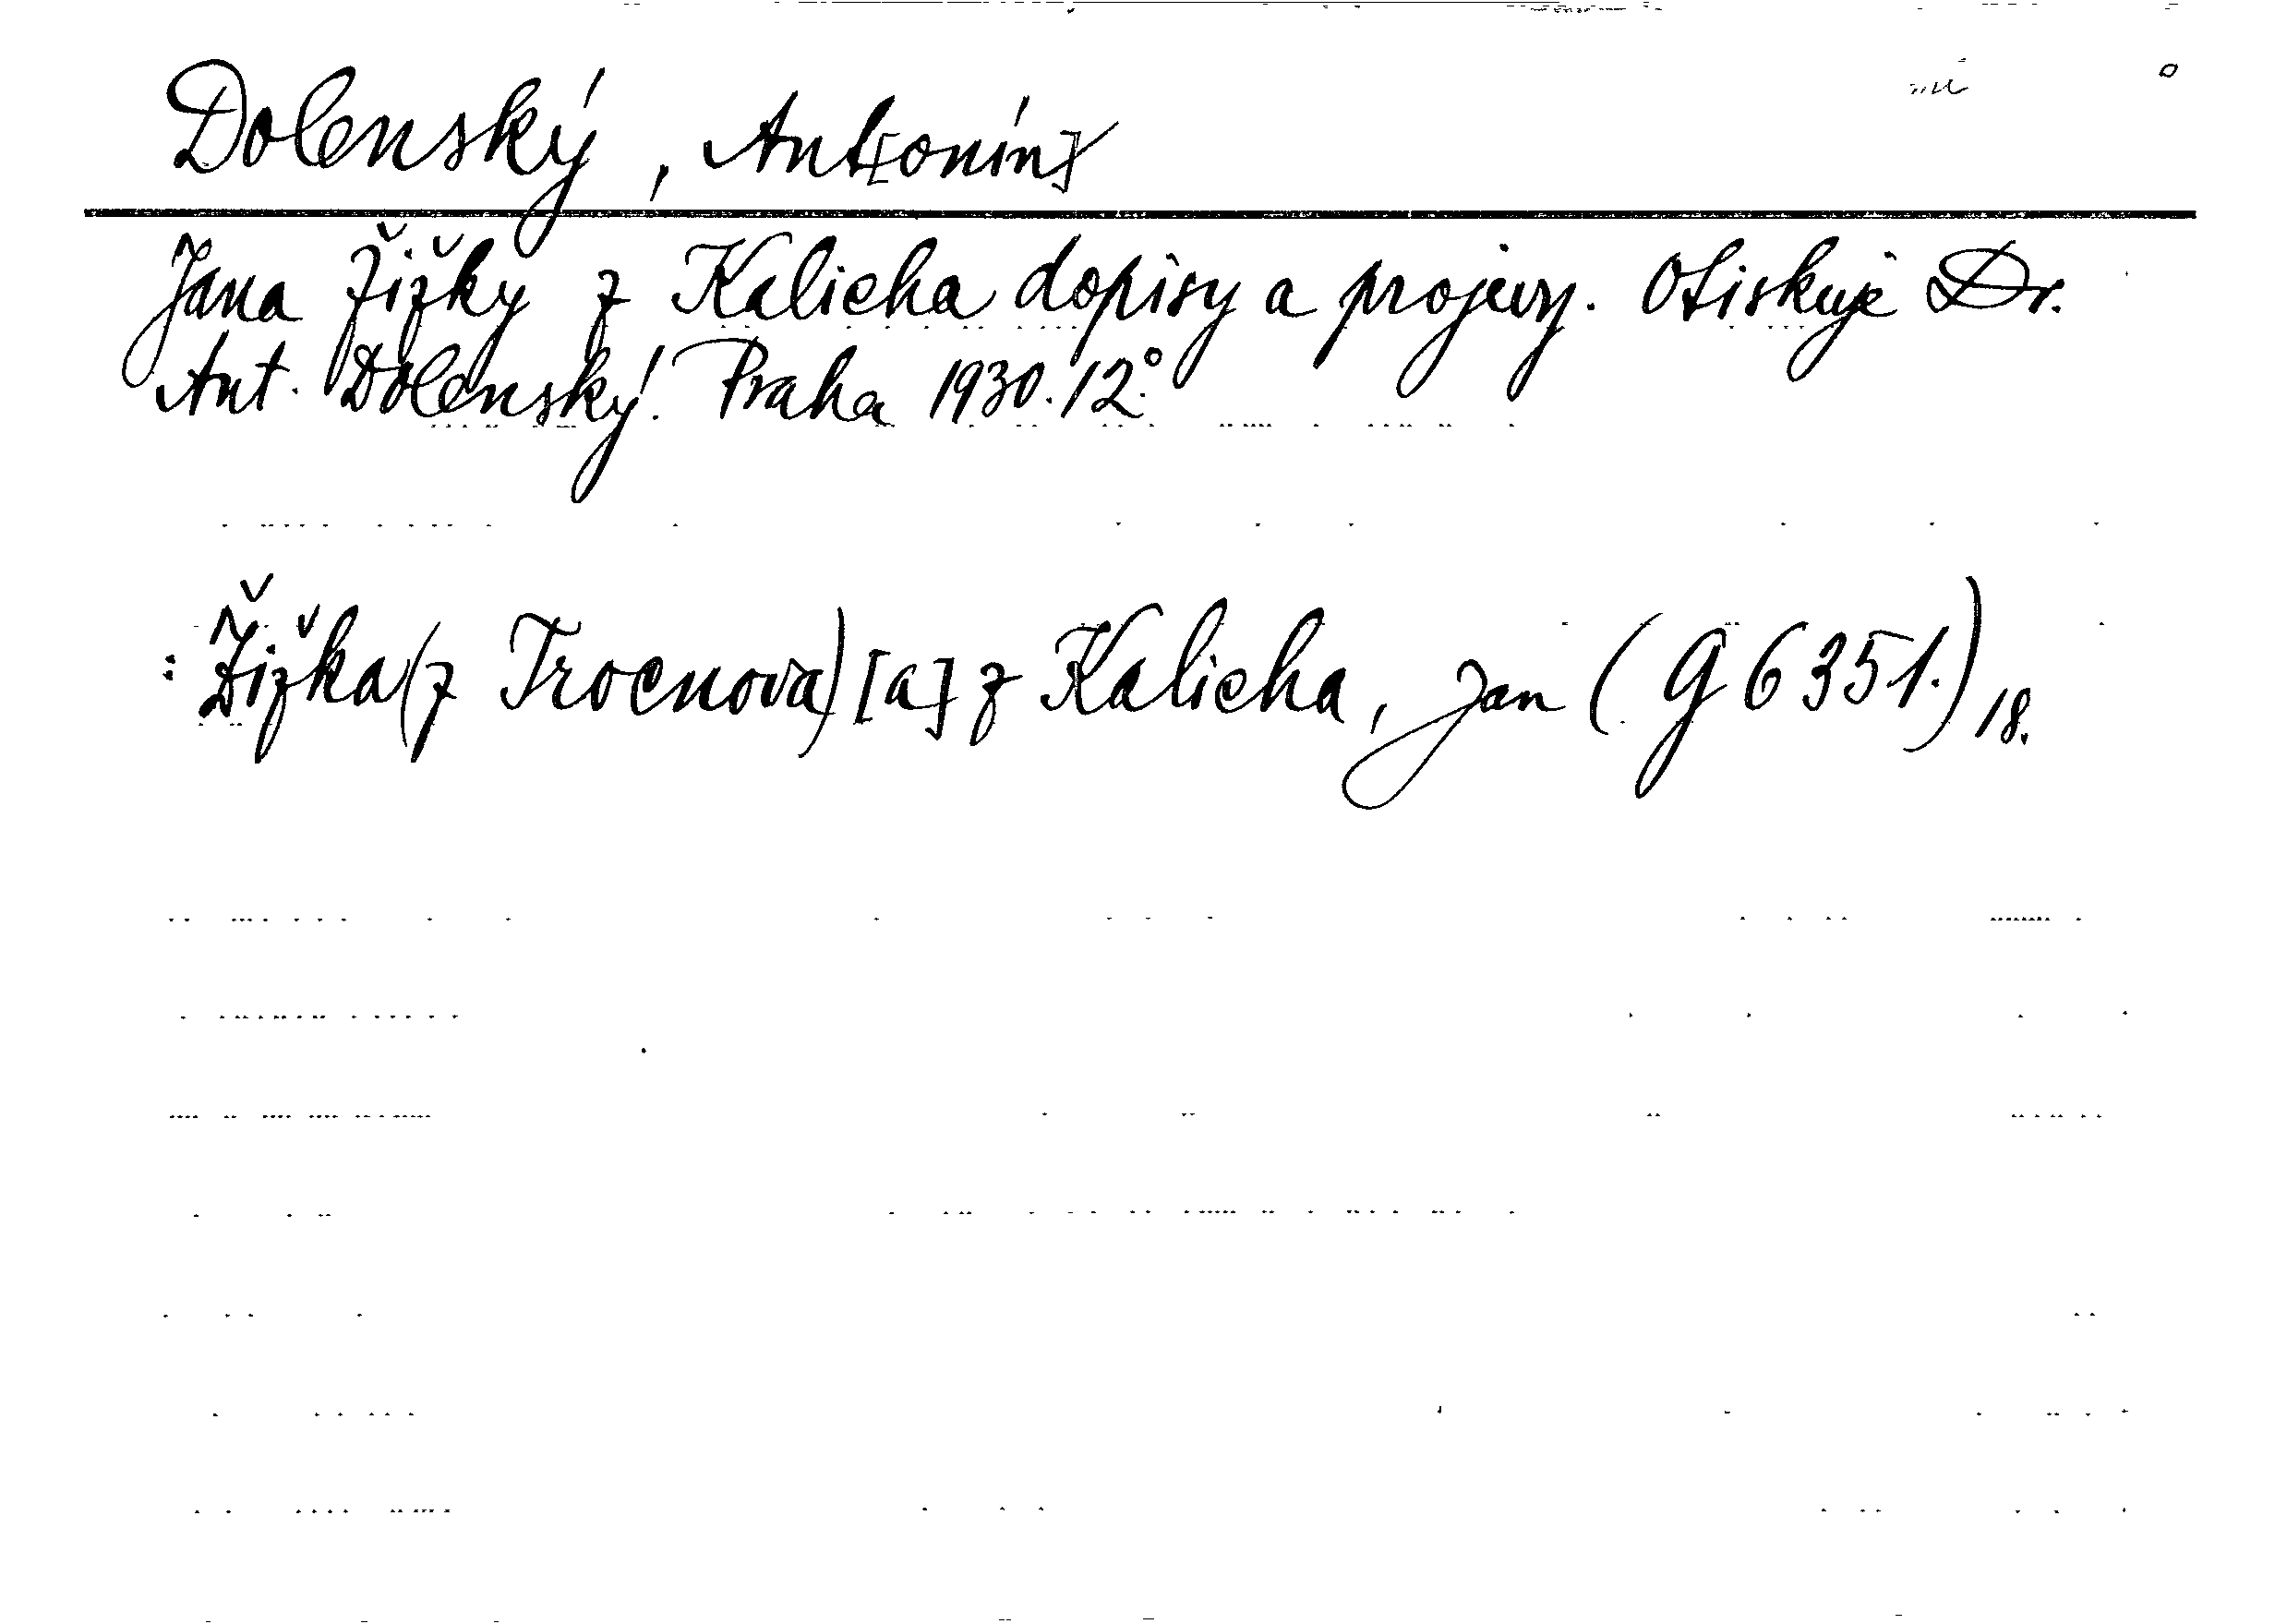 Dolenský, Ant[onín]
Jana Žižky z Kalicha dopisy a projevy. Otiskuje Dr.
Ant. Dolenský. Praha 1930. 12.°
: Žižka (z Trocnova) [a] z Kalicha, Jan (G 6351.) 18.